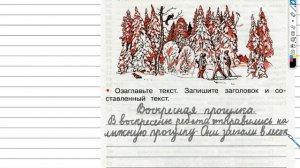 • Озаглавьте текст. Запишите заголовок и со-
ставленный текст.
Воскресная прогулка.
В воскресенье ребята отправились на
лыжную прогулку. Они зашли в лесок